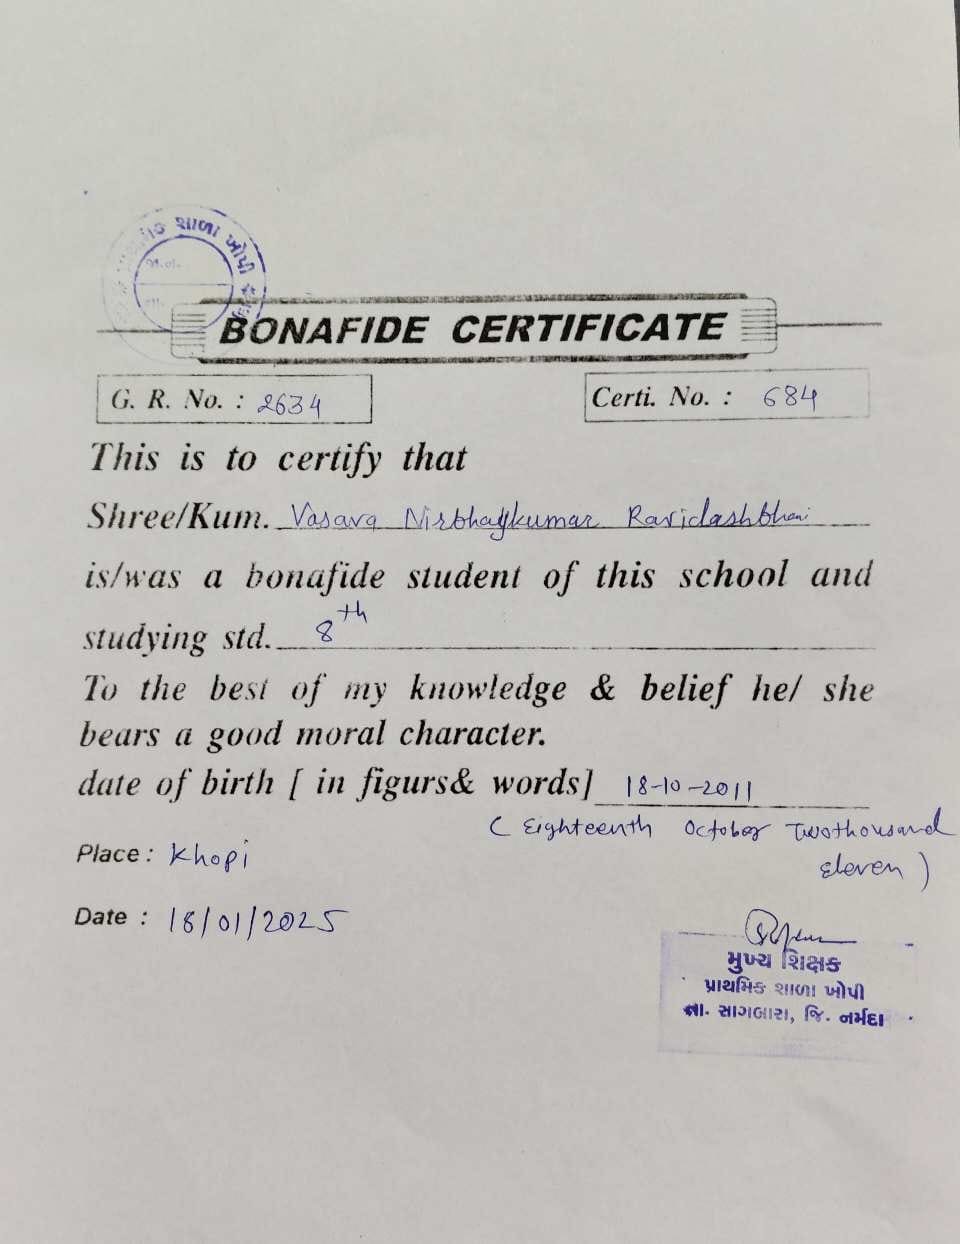 શાળા ખોપી
BONAFIDE CERTIFICATE
G. R. No. : 2634
Certi. No. : 684
This is to certify that
Shree/Kum. Vasava Nirbhaykumar Ravidashbhai
is/was a bonafide student of this school and
studying std. 8th
To the best of my knowledge & belief he/ she
bears a good moral character.
date of birth [ in figurs& words] 18-10-2011
( Eighteenth October Twothousand
Eleven )
Place : Khopi
Date : 18/01/2025
મુખ્ય શિક્ષક
પ્રાથમિક શાળા ખોપી
તા. સાગબારા, જિ. નર્મદા